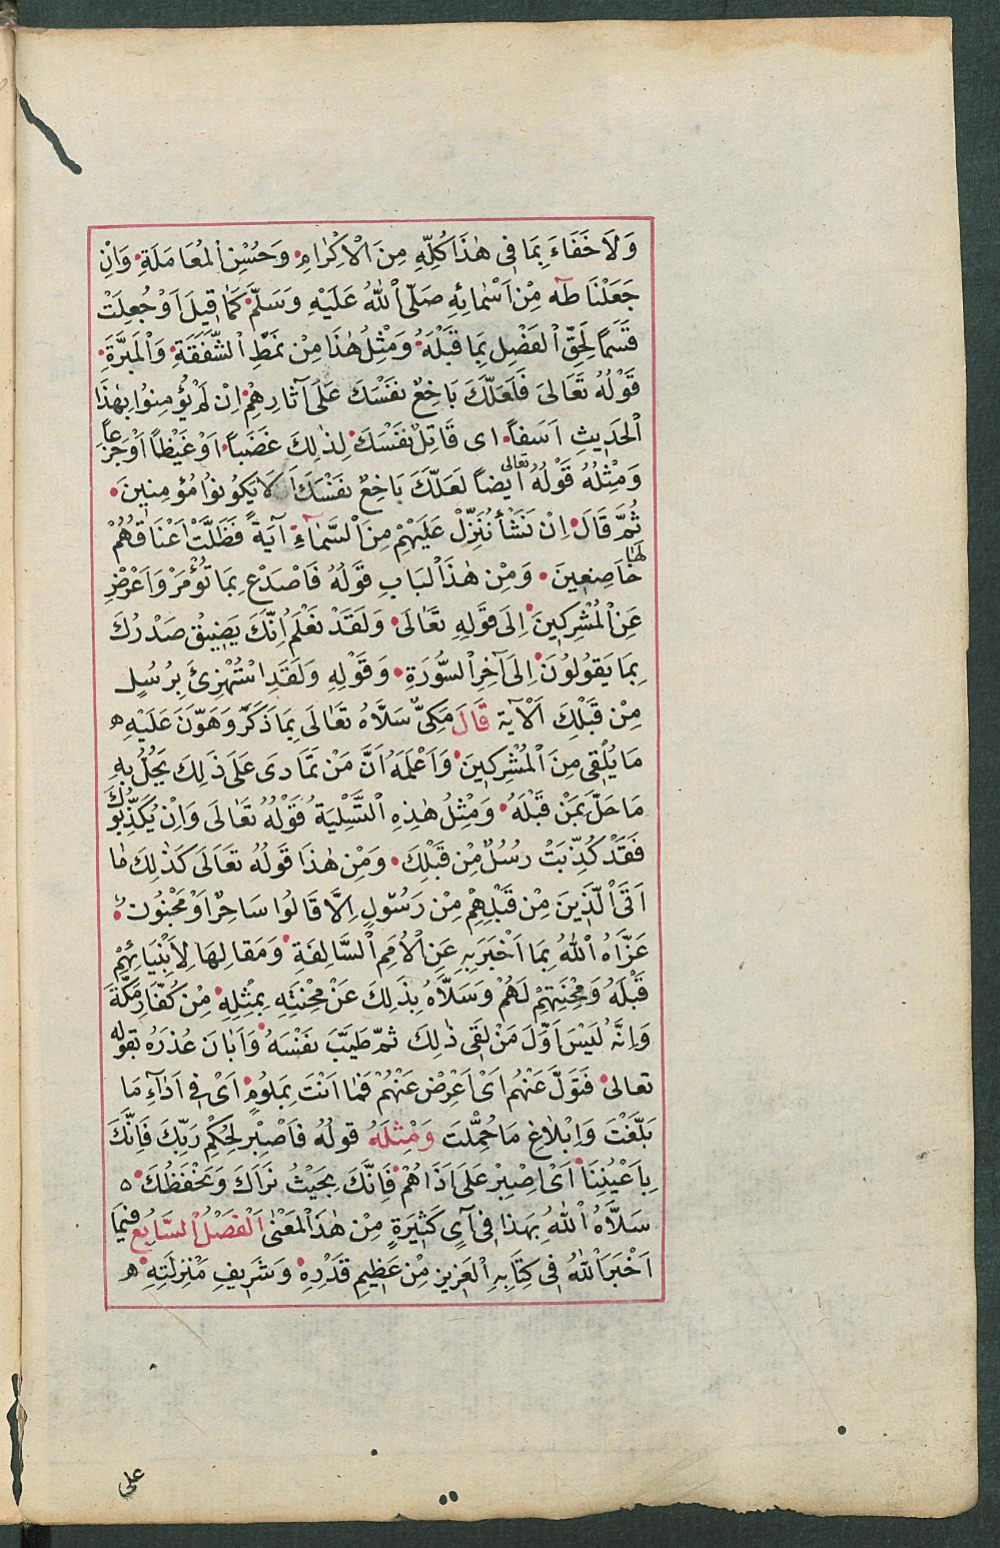 وَلَا خَفَاءَ بِمَا فِى هٰذَا كُلِّهِ مِنَ الْاِكْرَامِ وَحُسْنِ الْمُعَامَلَةِ وَاِنْ
جَعَلْنَا طٰه مِنْ اَسْمَائِهِ صَلَّى اللهُ عَلَيْهِ وَسَلَّمَ كَمَا قِيلَ اَوْ جُعِلَتْ
قَسَمًا لَحِقَ الْفَصْلُ بِمَا قَبْلَهُ وَمِثْلُ هٰذَا مِنْ نَمَطِ الشَّفَقَةِ وَالْمَبَرَّةِ
قَوْلُهُ تَعَالَى فَلَعَلَّكَ بَاخِعٌ نَفْسَكَ عَلَى آثَارِهِمْ اِنْ لَمْ يُؤْمِنُوا بِهٰذَا
الْحَدِيثِ اَسَفاً اى قَاتِلٌ نَفْسَكَ لِذٰلِكَ غَضَباً اَوْ غَيْظاً اَوْ جَزَعاً
وَمِثْلُهُ قَوْلُهُ تعالى اَيضاً لَعَلَّكَ بَاخِعٌ نَفْسَكَ اَن لَا يَكُونُوا مُؤمِنِينَ
ثُمَّ قَالَ اِنْ نَشَأْ نُنَزِّلْ عَلَيْهِمْ مِنَ السَّمَاءِ آيَةً فَظَلَّتْ اَعْنَاقُهُمْ
لَهَا خَاضِعِينَ وَمِنْ هٰذَا الْبَابِ قَوْلُهُ فَاصْدَعْ بِمَا تُؤْمَرُ وَاَعْرِضْ
عَنِ الْمُشْرِكِينَ اِلَى قَوْلِهِ تَعَالَى وَلَقَدْ نَعْلَمُ اَنَّكَ يَضِيقُ صَدْرُكَ
بِمَا يَقُولُونَ اِلَى آخِرِ السُّورَةِ وَقَوْلِهِ وَلَقَدِ اسْتُهْزِئَ بِرُسُلٍ
مِنْ قَبْلِكَ اَلْآيَة قَالَ مَكِىٌّ سَلَّاهُ تَعَالَى بِمَا ذَكَرَ وَهَوَّنَ عَلَيْهِ
مَا يُلْقِى مِنَ الْمُشْرِكِينَ وَاَعْلَمَهُ اَنَّ مَنْ تَمَادى عَلَى ذٰلِكَ يَحُلُّ بِهِ
مَا حَلَّ بِمَنْ قَبْلَهُ وَمِثْلُ هٰذِهِ التَّسْلِيَةِ قَوْلُهُ تَعَالَى وَاِنْ يُكَذِّبُوكَ
فَقَدْ كُذِّبَتْ رُسُلٌ مِنْ قَبْلِكَ وَمِنْ هٰذَا قَوْلُهُ تَعَالَى كَذٰلِكَ مَا
اَتَى الَّذِينَ مِنْ قَبْلِهِمْ مِنْ رَسُولٍ اِلَّا قَالُوا سَاحِرٌ اَوْ مَجْنُونٌ
عَزَّاهُ اللهُ بِمَا اَخْبَرَ بِهِ عَنِ الْاُمَمِ السَّالِفَةِ وَمَقَالِهَا لِاَنْبِيَائِهِمْ
قَبْلَهُ وَمِحْنَتِهِمْ لَهُمْ وَسَلَّاهُ بِذٰلِكَ عَنْ مِحْنَتِهِ بِمِثْلِهِ مِنْ كُفَّارِ مَكَّةَ
وَاِنَّهُ لَيْسَ اَوَّلَ مَنْ لَقِىَ ذٰلِكَ ثُمَّ طَيَّبَ نَفْسَهُ وَاَبَانَ عُذرَهُ بقوله
تعالى فَتَوَلَّ عَنْهُمْ اَىْ اَعْرِضْ عَنْهُمْ فَمَا اَنْتَ بِمَلُومٍ اَىْ فِى اَدَاءِ مَا
بَلَّغْتَ وَاِبْلَاغِ مَا حُمِّلْتَ وَمِثْلُهُ قولُهُ فَاصْبِرْ لِحُكْمِ رَبِّكَ فَاِنَّكَ
بِاَعْيُنِنَا اَىْ اصْبِرْ عَلَى اَذَاهُمْ فَاِنَّكَ بِحَيْثُ نَرَاكَ وَنَحْفَظُكَ
سَلَّاهُ اللهُ بِهَذا فِى آىٍ كَثِيرَةٍ مِنْ هٰذَا الْمَعْنَى اَلْفَصْلُ السَّابِعُ فِيمَا
اَخْبَرَ اللهُ فِى كِتَابِهِ الْعَزِيزِ مِنْ عَظِيمِ قَدْرِهِ وَشَرِيفِ مَنْزِلَتِهِ
على